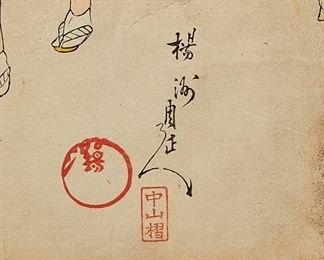 楊洲周延
中山摺